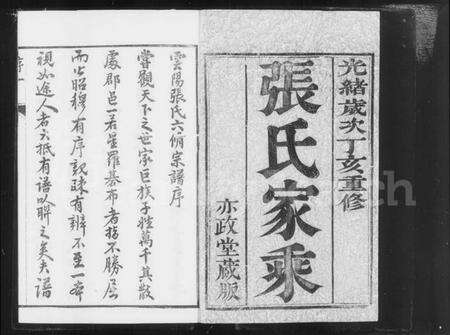 光緒歲次丁亥重修
張氏家乘
亦政堂藏版
雲陽張氏六脩宗譜序
嘗觀天下之世家巨族子姓萬千其散
處郡邑一若星羅碁布者指不勝屈
而必昭穆有序親疎有辨不至一本
視如途人者大抵有譜以聯之矣夫譜
序一